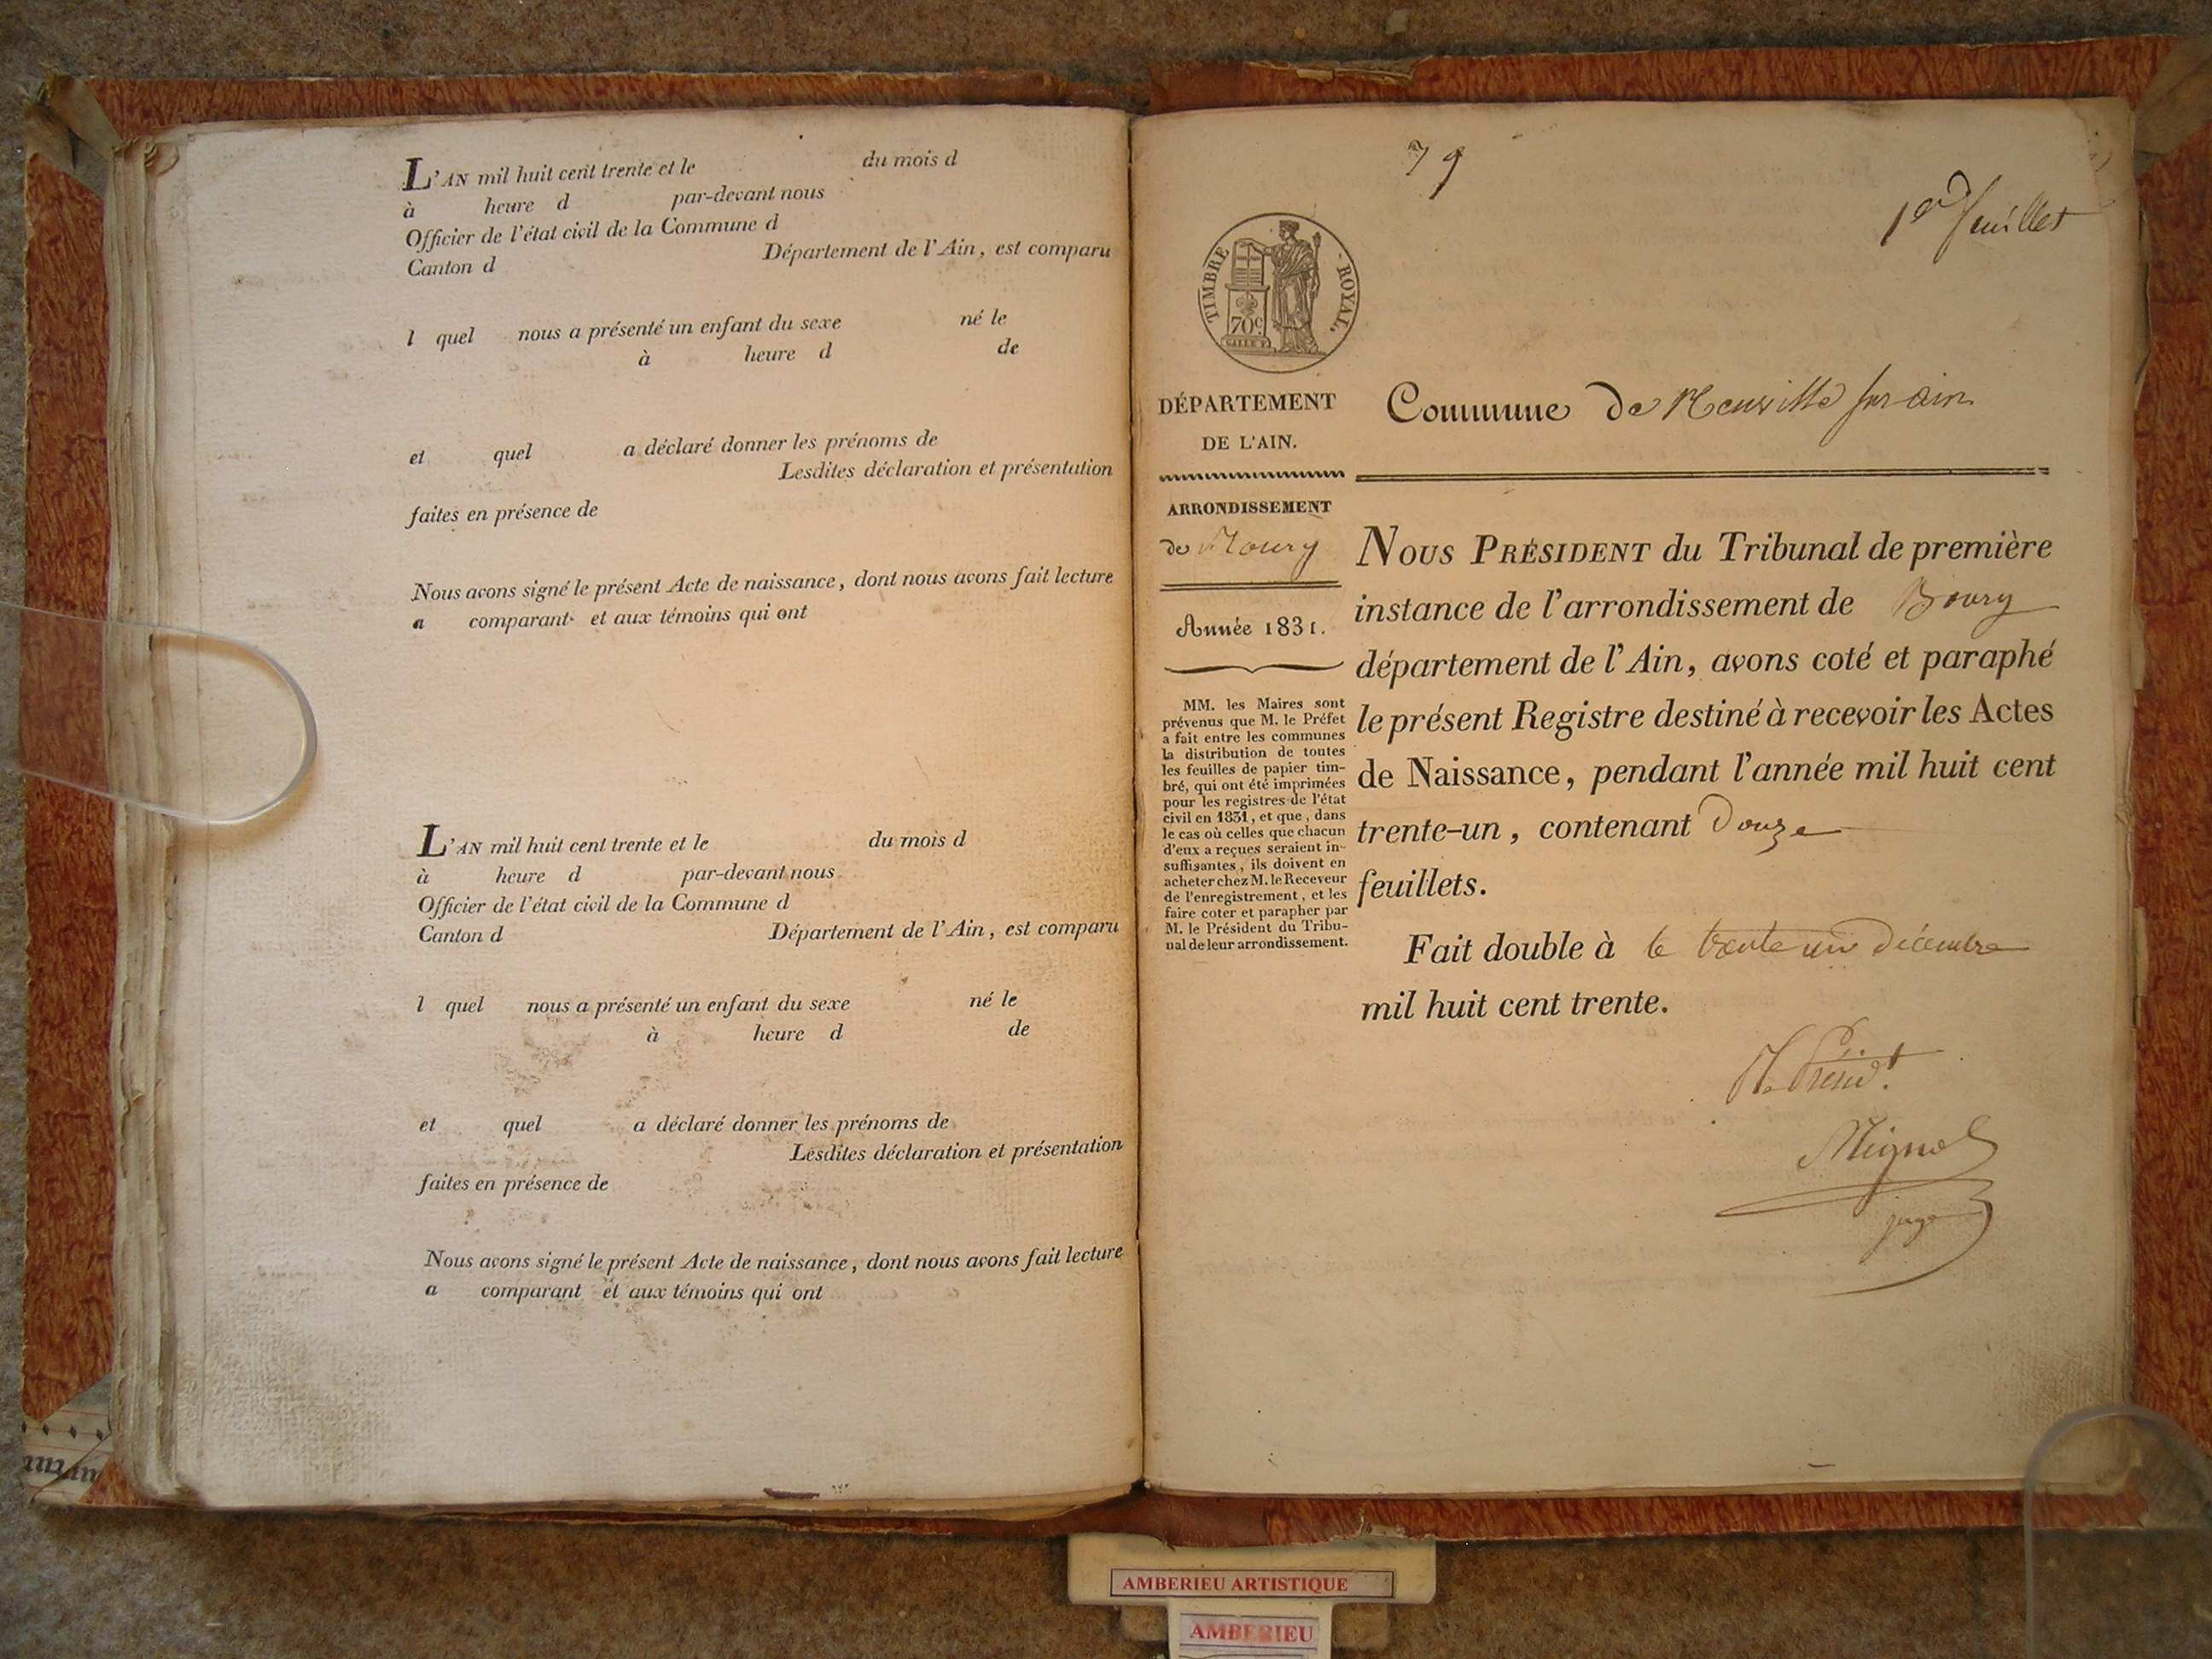 L'AN mil huit cent trente et le du mois d
à heure d par-devant nous
Officier de l'état civil de la Commune d
Canton d Département de l'Ain, est comparu
l quel nous a présenté un enfant du sexe né le
à heure d de
et quel a déclaré donner les prénoms de
Lesdites déclaration et présentation
faites en présence de
Nous avons signé le présent Acte de naissance, dont nous avons fait lecture
a comparant et aux témoins qui ont
L'AN mil huit cent trente et le du mois d
à heure d par-devant nous
Officier de l'état civil de la Commune d
Canton d Département de l'Ain, est comparu
l quel nous a présenté un enfant du sexe né le
à heure d de
et quel a déclaré donner les prénoms de
Lesdites déclaration et présentation
faites en présence de
Nous avons signé le présent Acte de naissance, dont nous avons fait lecture
a comparant et aux témoins qui ont
79
1er feuillet
TIMBRE ROYAL.
70c
DÉPARTEMENT
DE L'AIN.
Commune de Neuville sur ain
ARRONDISSEMENT
de Bourg
Année 1831.
MM. les Maires sont
prévenus que M. le Préfet
a fait entre les communes
la distribution de toutes
les feuilles de papier tim-
bré, qui ont été imprimées
pour les registres de l'état
civil en 1831, et que, dans
le cas où celles que chacun
d'eux a reçues seraient in-
suffisantes, ils doivent en
acheter chez M. le Receveur
de l'enregistrement, et les
faire coter et parapher par
M. le Président du Tribu-
nal de leur arrondissement.
NOUS PRÉSIDENT du Tribunal de première
instance de l'arrondissement de Bourg
département de l'Ain, avons coté et paraphé
le présent Registre destiné à recevoir les Actes
de Naissance, pendant l'année mil huit cent
trente-un, contenant Douze
feuillets.
Fait double à le trente un décembre
mil huit cent trente.
Présidt.
juge
AMBERIEU ARTISTIQUE
AMBERIEU